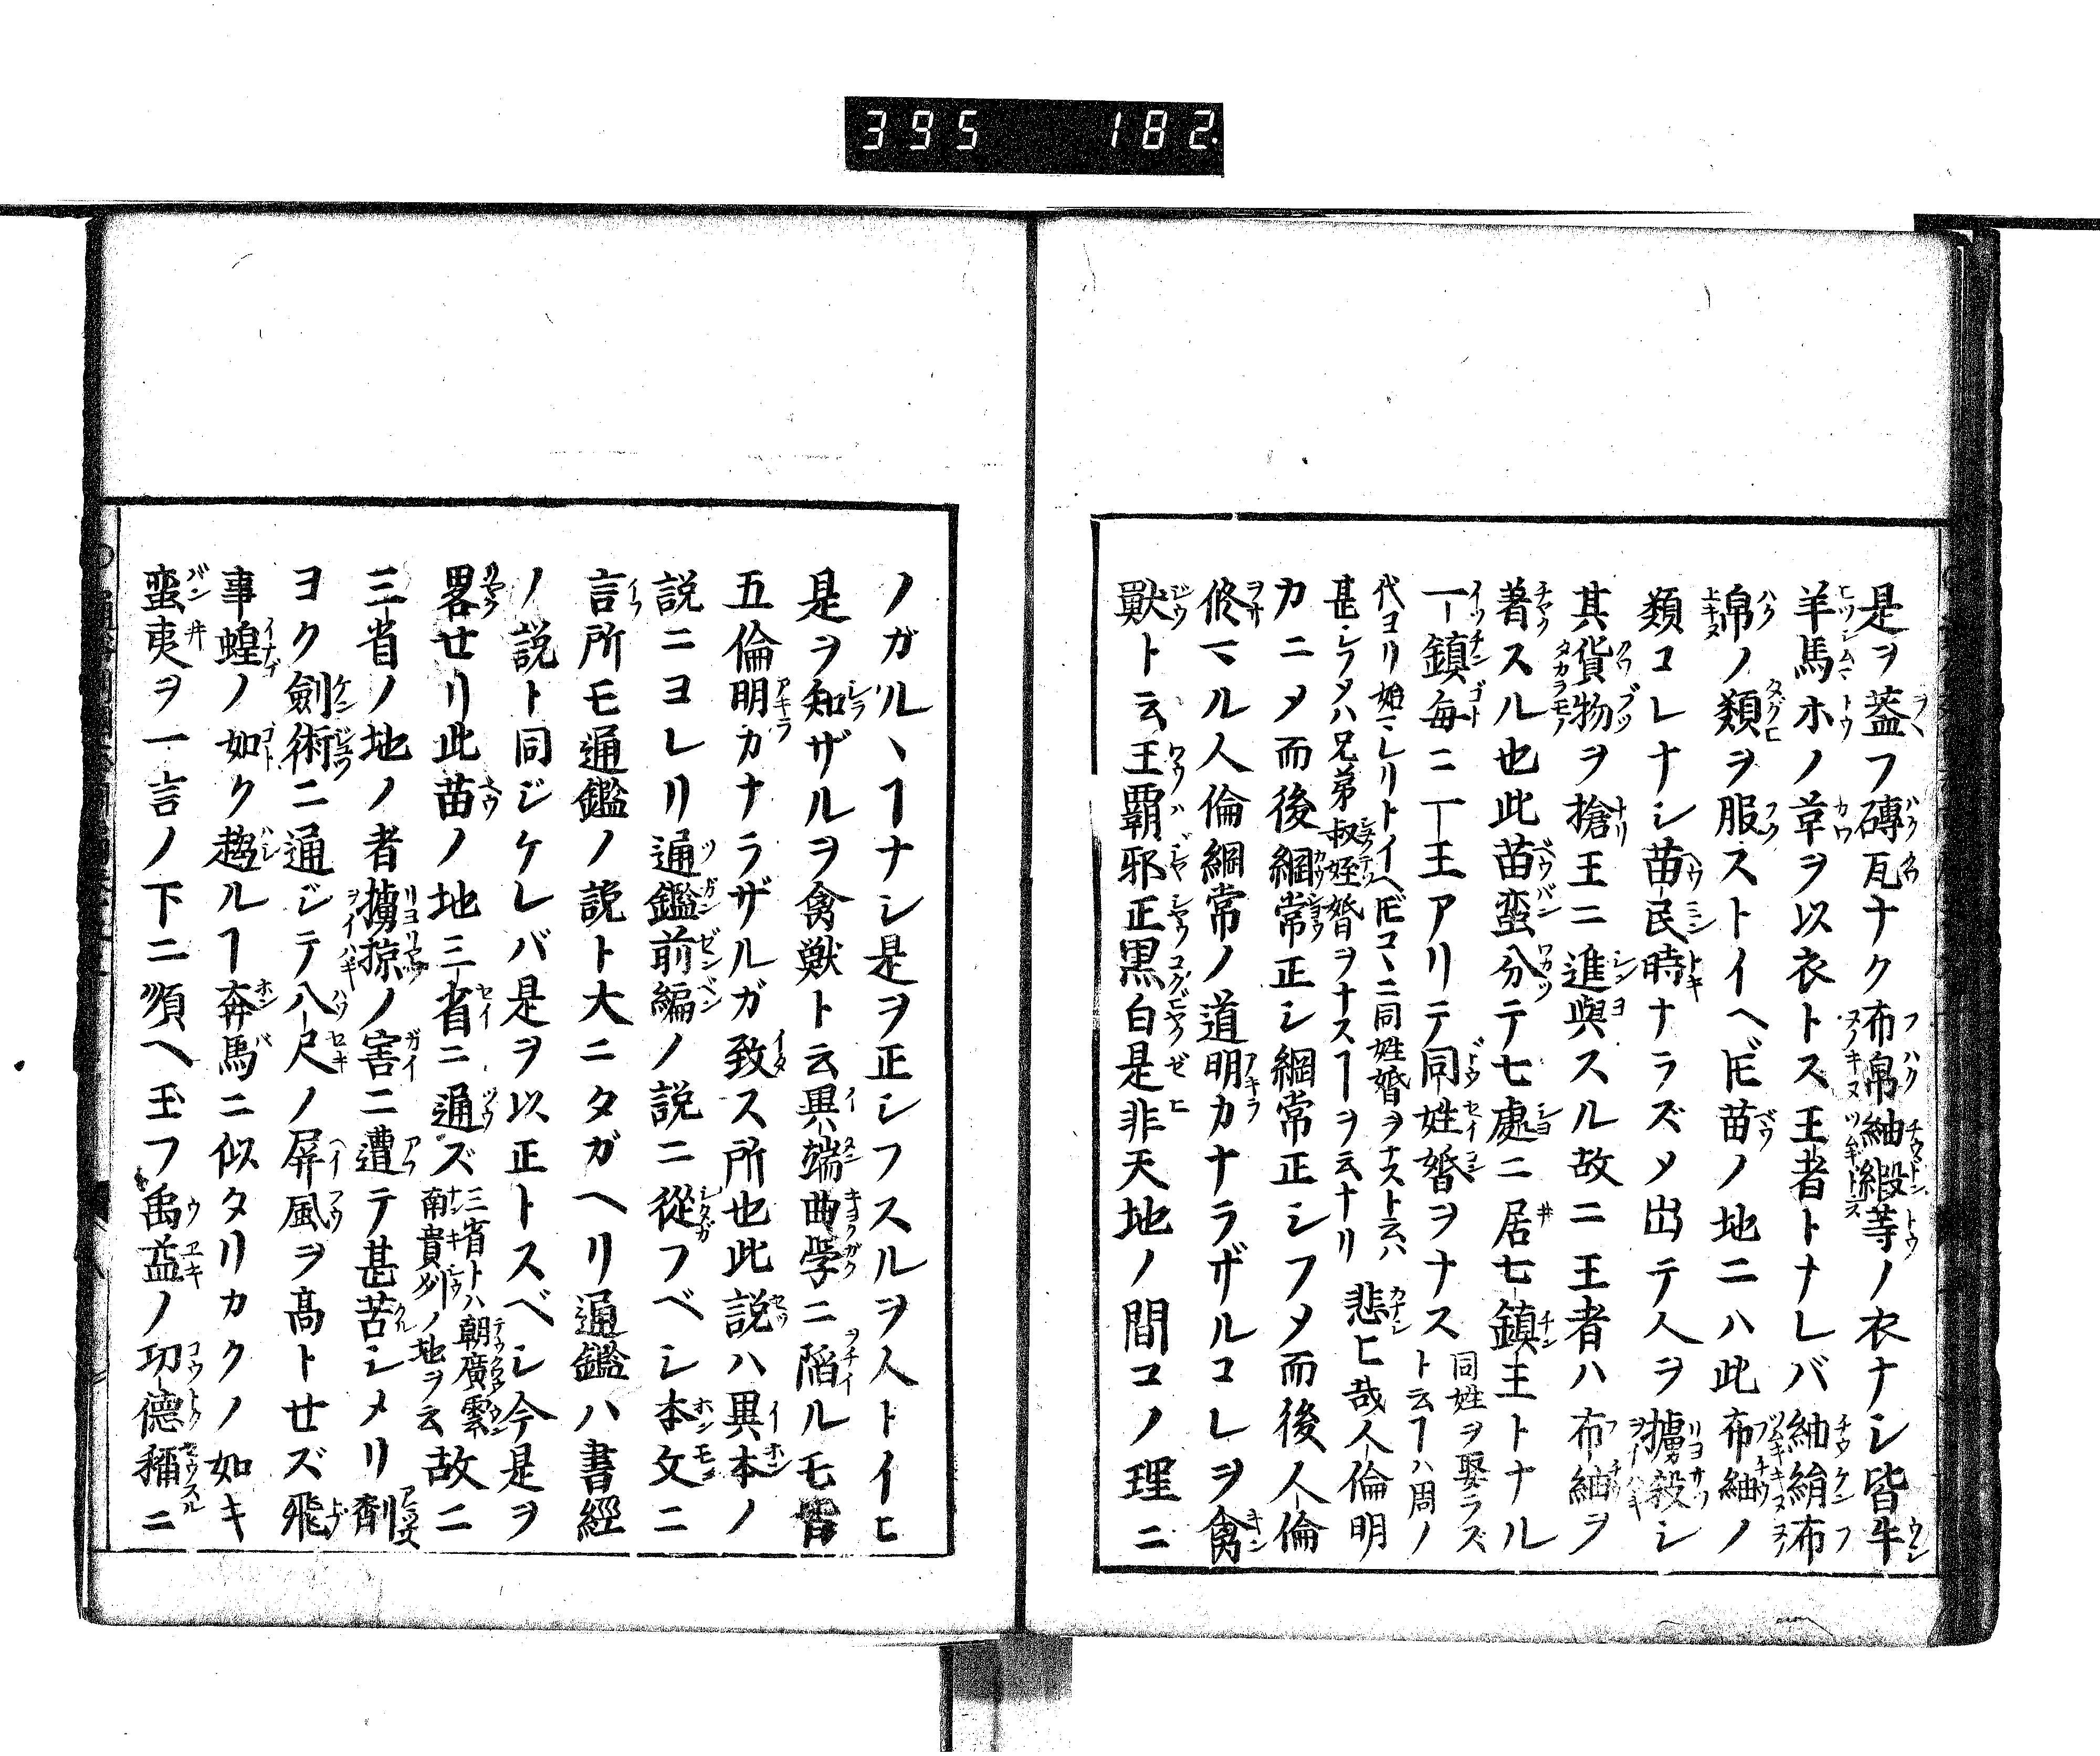 395 182
是ヲ葢フ磚瓦ナク布帛紬緞等ノ衣ナシ皆牛
羊馬ホノ草ヲ以衣トス王者トナレバ紬絹布
帛ノ類ヲ服ストイヘ𪜈苗ノ地ニハ此布紬ノ
類コレナシ苗民時ナラズメ出テ人ヲ擄殺シ
其貨物ヲ搶王ニ進與スル故ニ王者ハ布紬ヲ
著スル也此苗蛮分テ七處ニ居七鎮王トナル
一鎮毎ニ一王アリテ同姓婚ヲナス同姓ヲ娶ラズ
ト云ヿハ周ノ
代ヨリ始マレリトイヘ𪜈コヽニ同姓婚ヲナスト云ハ
甚シフメハ兄弟叔姪婚ヲナスヿヲ云ナリ悲ヒ哉人倫明
カニメ而後綱常正シ綱常正シフメ而後人倫
修マル人倫綱常ノ道明カナラザルコレヲ禽
獣ト云王覇邪正黒白是非天地ノ間コノ理ニ
ノガルヽヿナシ是ヲ正シフスルヲ人トイヒ
是ヲ知ザルヲ禽獣ト云異端曲学ニ陷ルモ皆
五倫明カナラザルガ致ス所也此説ハ異本ノ
説ニヨレリ通鑑前編ノ説ニ從フベシ本文ニ
言所モ通鑑ノ説ト大ニタガヘリ通鑑ハ書經
ノ説ト同ジケレバ是ヲ以正トスベシ今是ヲ
畧せリ此苗ノ地三省ニ通ズ三省トハ朝廣雲
南貴州ノ地ヲ云故ニ
三省ノ地ノ者擄掠ノ害ニ遭テ甚苦シメリ劑
ヨク劍術ニ通ジテ八尺ノ屏風ヲ高トせズ飛
事蝗ノ如ク趨ルヿ奔馬ニ似タリカクノ如キ
蛮夷ヲ一言ノ下ニ順ヘ玉フ禹益ノ功德稱ニ